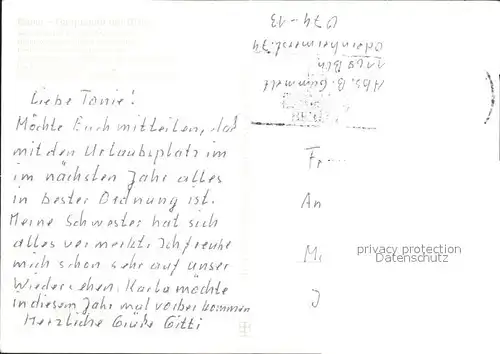 Liebe Tante!
Möchte Euch mitteilen, daß
mit den Urlaubsplatz im
im nächsten Jahr alles
in bester Ordnung ist.
Meine Schwester hat sich
alles vermerkt. Ich freuhe
mich schon sehr auf unser
Wiedersehen. Karla möchte
in diesem Jahr mal vorbei kommen
Herzliche Grüße Gitti
Abs. B.
1120 Bln
74
74-13
Fr
An
M
privacy protection
Datenschutz